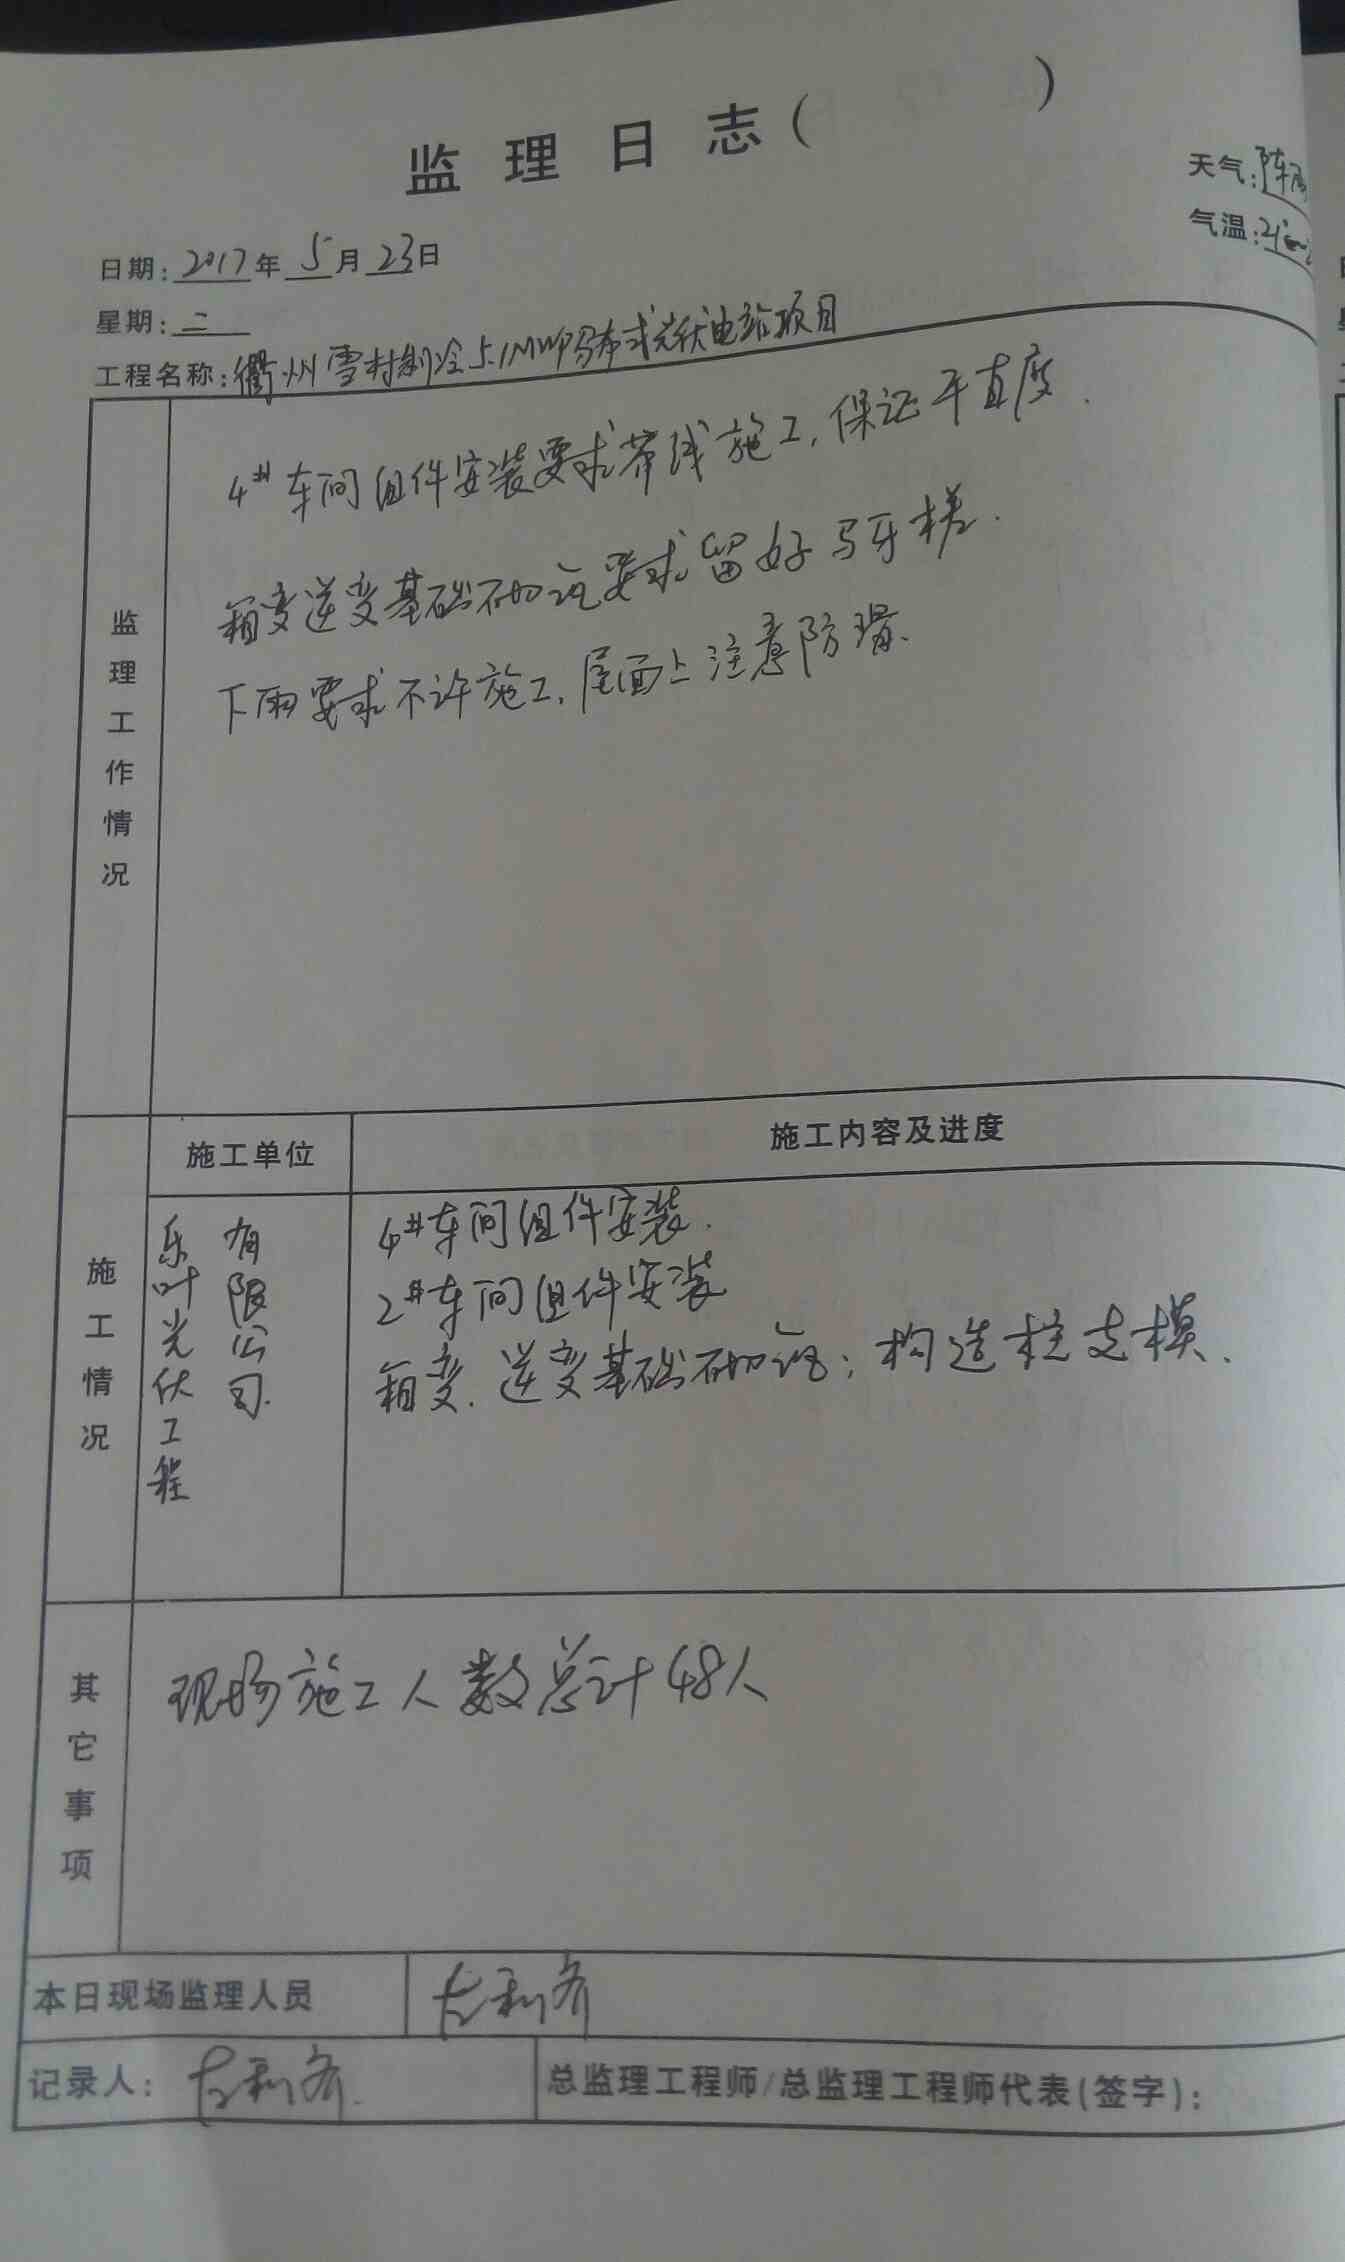 监理日志( )
天气:阵雨
气温:21℃
日期:2017年5月23日
星期:二
工程名称:衢州雪村制冷5.1MWP分布式光伏电站项目
监理工作情况
4#车间组件安装要求带线施工,保证平直度.
箱变逆变基础砌砖要求留好马牙槎.
下雨要求不许施工,屋面上注意防滑.
施工情况
施工单位
施工内容及进度
乐叶光伏工程
有限公司.
4#车间组件安装.
2#车间组件安装
箱变.逆变基础砌砖;构造柱支模.
其它事项
现场施工人数总计48人
本日现场监理人员
记录人:
总监理工程师/总监理工程师代表(签字):